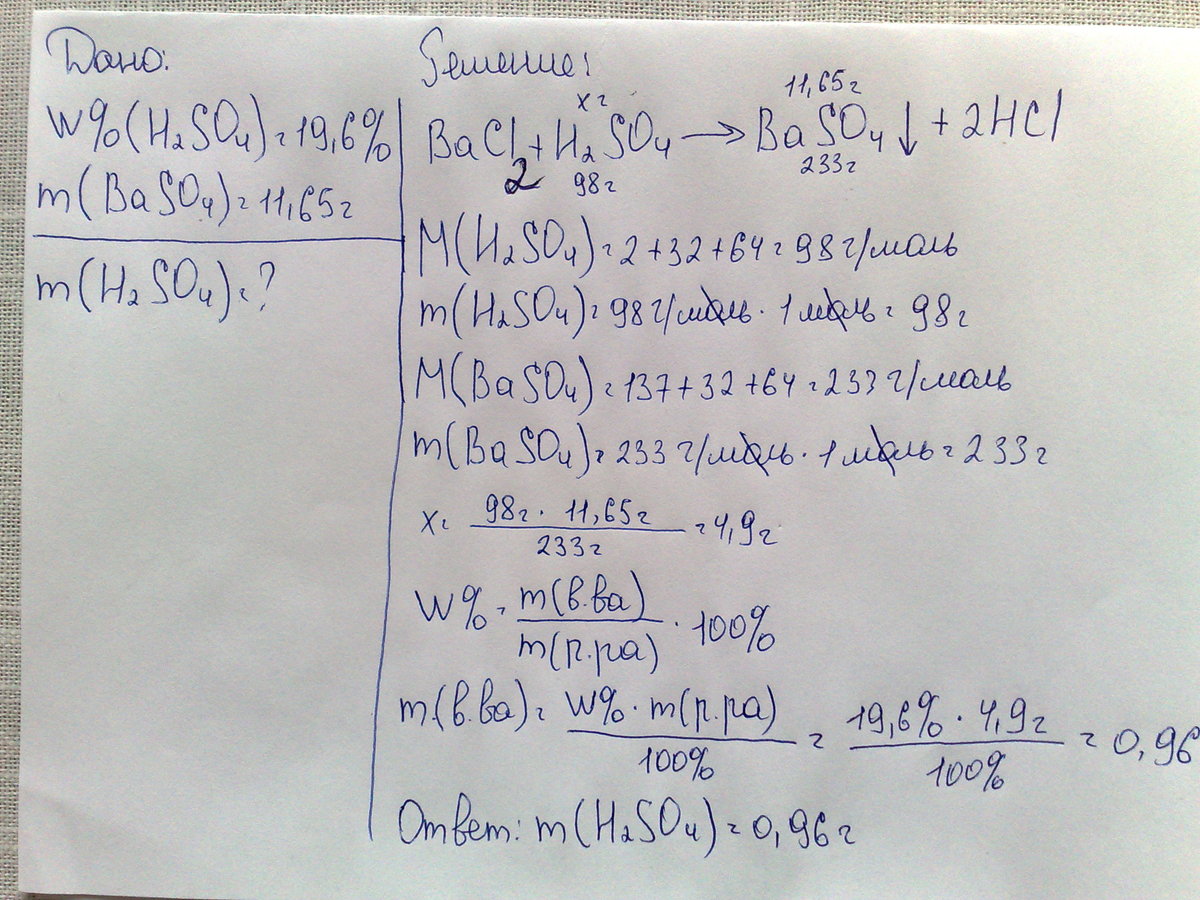 Дано:
W%(H₂SO₄)=19,6%
m(BaSO₄)=11,65г
m(H₂SO₄)=?
Решение:
x г 11,65г
BaCl₂+H₂SO₄→BaSO₄↓+2HCl
98г 233г
M(H₂SO₄)=2+32+64=98г/моль
m(H₂SO₄)=98г/моль·1моль=98г
M(BaSO₄)=137+32+64=233г/моль
m(BaSO₄)=233г/моль·1моль=233г
x=98г·11,65г/233г=4,9г
W%=m(в.ва)/m(р.ра)·100%
m(в.ва)=W%·m(р.ра)/100%=19,6%·4,9г/100%=0,96
Ответ: m(H₂SO₄)=0,96г